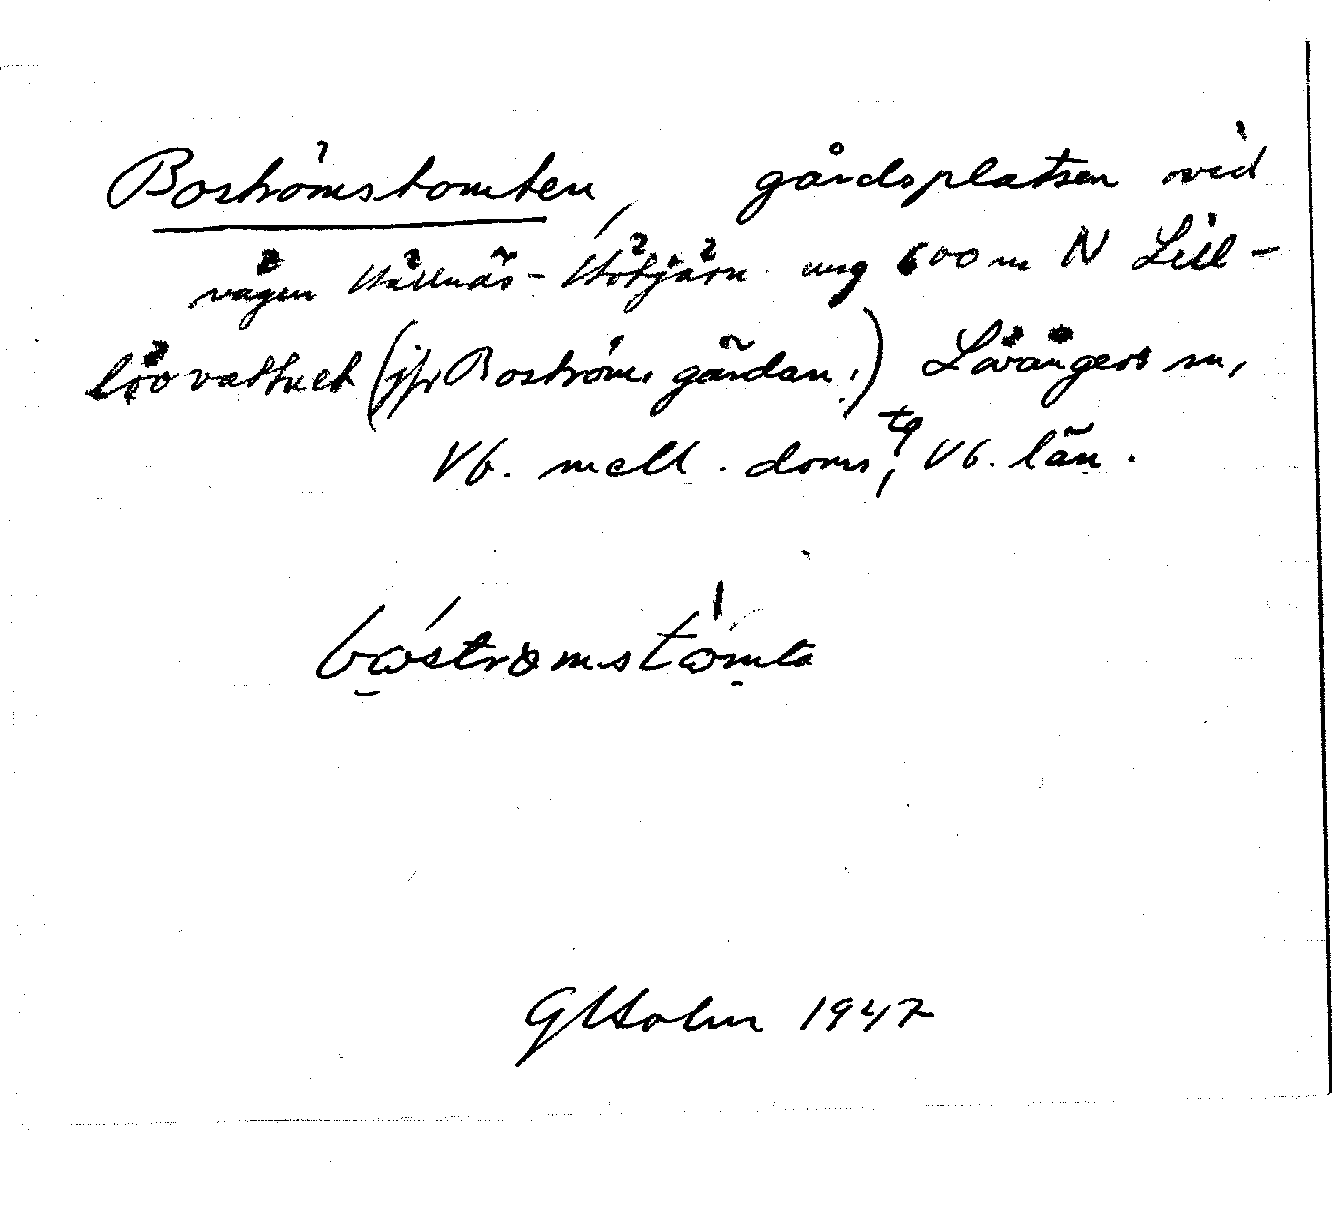 Boströmstomten, gårdsplatsen vid
vägen Hållnäs - Hötjärn ung 600 m N Lill-
lövvattnet (jfr Boströmsgårdan!) Lövångers sn,
Vb. mell. doms tg, Vb. län.
bo̯strømstomta
GHolm 1947